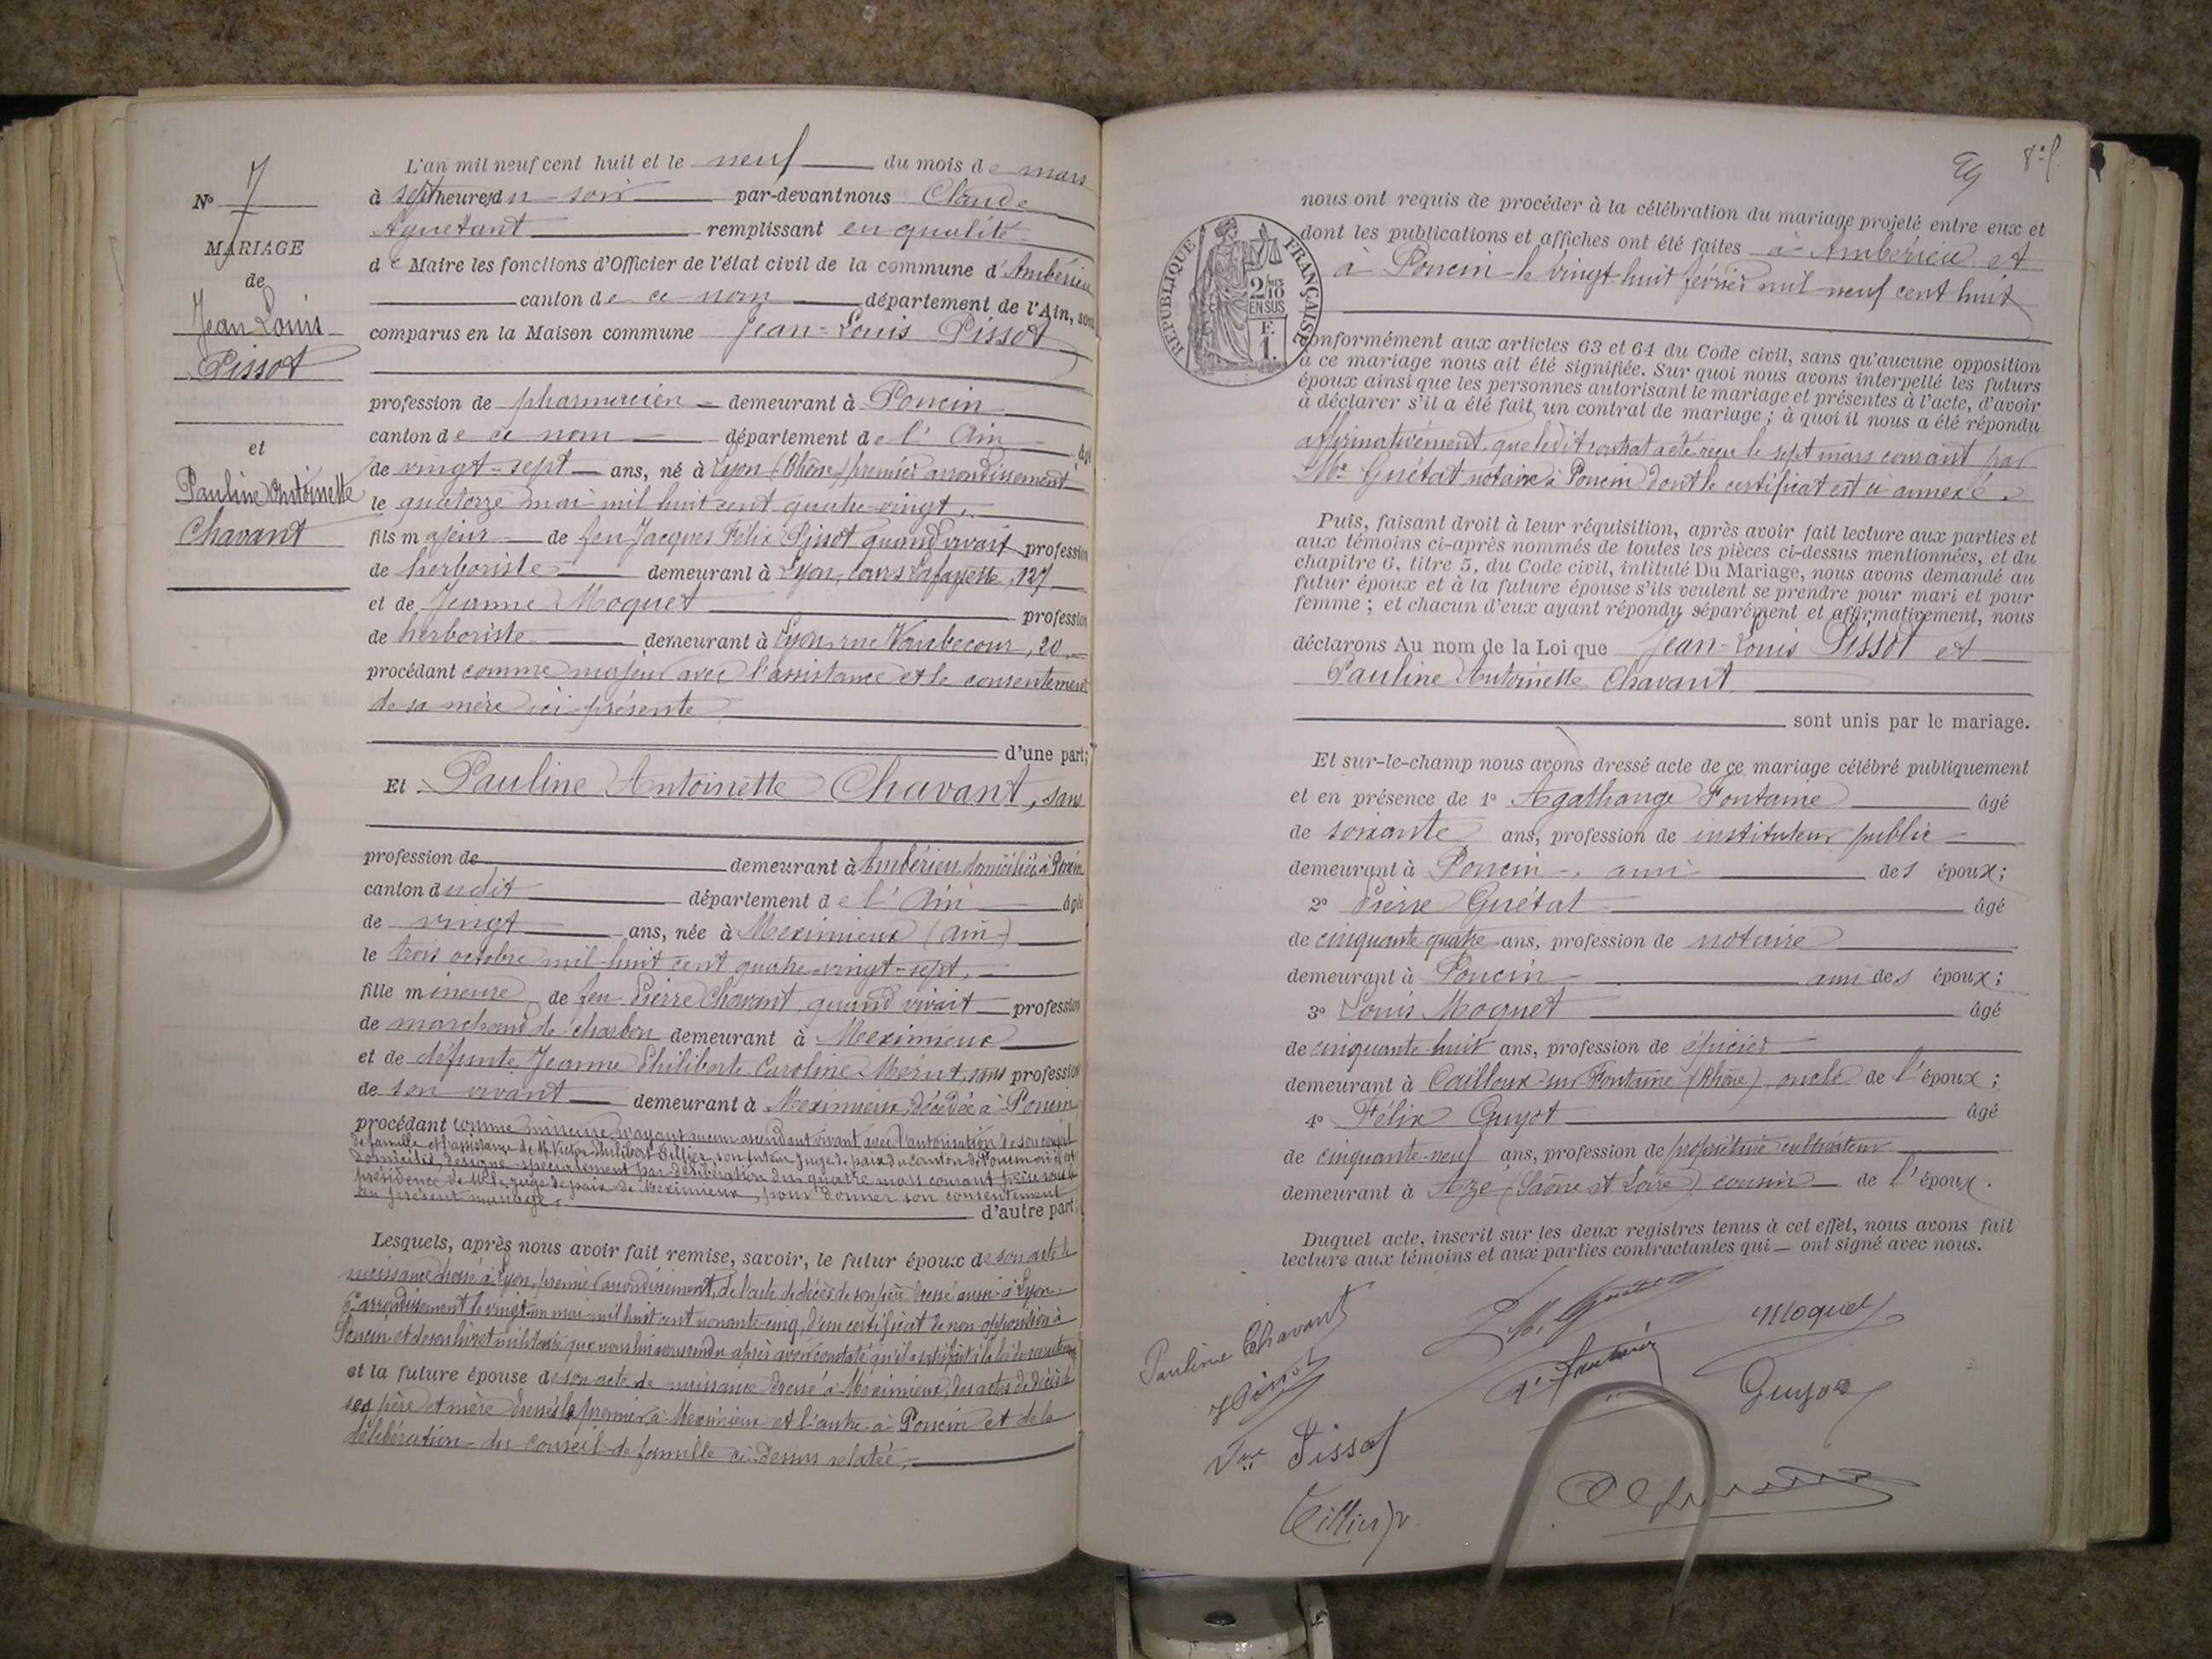 N° 7
MARIAGE
de
Jean Louis
Pissot
et
Pauline Antoinette
Chavant
L'an mil neuf cent huit et le neuf du mois de mars
à sept heures du soir par-devant nous Claude
Aguetant remplissant en qualité
de Maire les fonctions d'Officier de l'état civil de la commune d'Ambérieu
canton de ce nom département de l'Ain, sont
comparus en la Maison commune Jean-Louis Pissot
profession de pharmacien demeurant à Poncin
canton de ce nom département de l'Ain âgé
de vingt-sept ans, né à Lyon (Rhône) premier arrondissement
le quatorze mai mil huit cent quatre-vingt,
fils majeur de feu Jacques Félix Pissot quand vivait profession
de herboriste demeurant à Lyon, cours Lafayette, 127
et de Jeanne Moquet profession
de herboriste demeurant à Lyon, rue Vaubecour, 20,
procédant comme majeur avec l'assistance et le consentement
de sa mère ici présente
d'une part;
Et Pauline Antoinette Chavant, sans
profession de demeurant à Ambérieu domiciliée à Poncin
canton dudit département de l'Ain âgée
de vingt ans, née à Meximieux (Ain)
le trois octobre mil huit cent quatre-vingt-sept,
fille mineure de feu Pierre Chavant, quand vivait profession
de marchand de charbon demeurant à Meximieux
et de défunte Jeanne Philiberte Caroline Mérut, sans profession
de son vivant demeurant à Meximieux décédée à Poncin
procédant comme mineure n'ayant aucun ascendant vivant avec l'autorisation de son conseil
de famille et l'assistance de M. Victor Philibert Tillier, son tuteur juge de paix du canton de Poncin où il est
domicilié, désigné spécialement par délibération du quatre mars courant prise sous la
présidence de M. le juge de paix de Meximieux, pour donner son consentement
au présent mariage,
d'autre part;
Lesquels, après nous avoir fait remise, savoir, le futur époux de son acte de
naissance dressé à Lyon, premier arrondissement, de l'acte de décès de son père dressé aussi à Lyon,
6e arrondissement le vingt-un mai mil huit cent nonante-cinq, d'un certificat de non opposition à
Poncin et de son livret militaire que nous lui avons rendu après avoir constaté qu'il a satisfait à la loi du recrutement
et la future épouse de son acte de naissance dressé à Meximieux, des actes de décès de
ses père et mère dressés le premier à Meximieux et l'autre à Poncin et de la
délibération du conseil de famille ci-dessus relatée.
8e f.
RÉPUBLIQUE FRANÇAISE
2/10
EN SUS
F.
1.
nous ont requis de procéder à la célébration du mariage projeté entre eux et
dont les publications et affiches ont été faites à Ambérieu et
à Poncin le vingt-huit février mil neuf cent huit
conformément aux articles 63 et 64 du Code civil, sans qu'aucune opposition
à ce mariage nous ait été signifiée. Sur quoi nous avons interpellé les futurs
époux ainsi que les personnes autorisant le mariage et présentes à l'acte, d'avoir
à déclarer s'il a été fait un contrat de mariage; à quoi il nous a été répondu
affirmativement que ledit contrat a été reçu le sept mars courant par
Me Guétat notaire à Poncin dont le certificat est ci annexé.
Puis, faisant droit à leur réquisition, après avoir fait lecture aux parties et
aux témoins ci-après nommés de toutes les pièces ci-dessus mentionnées, et du
chapitre 6, titre 5, du Code civil, intitulé Du Mariage, nous avons demandé au
futur époux et à la future épouse s'ils veulent se prendre pour mari et pour
femme; et chacun d'eux ayant répondu séparément et affirmativement, nous
déclarons Au nom de la Loi que Jean-Louis Pissot et
Pauline Antoinette Chavant
sont unis par le mariage.
Et sur-le-champ nous avons dressé acte de ce mariage célébré publiquement
et en présence de 1° Agathange Fontaine âgé
de soixante ans, profession de instituteur public
demeurant à Poncin, ami des époux;
2° Pierre Guétat âgé
de cinquante-quatre ans, profession de notaire
demeurant à Poncin ami des époux;
3° Louis Moquet âgé
de cinquante-huit ans, profession de épicier
demeurant à Cailloux-sur-Fontaine (Rhône), oncle de l'époux;
4° Félix Guyot âgé
de cinquante-neuf ans, profession de propriétaire cultivateur
demeurant à Azé (Saône et Loire) cousin de l'époux.
Duquel acte, inscrit sur les deux registres tenus à cet effet, nous avons fait
lecture aux témoins et aux parties contractantes qui ont signé avec nous.
Pauline Chavant
Moquet
Guyot
Vve Pissot
Tillier